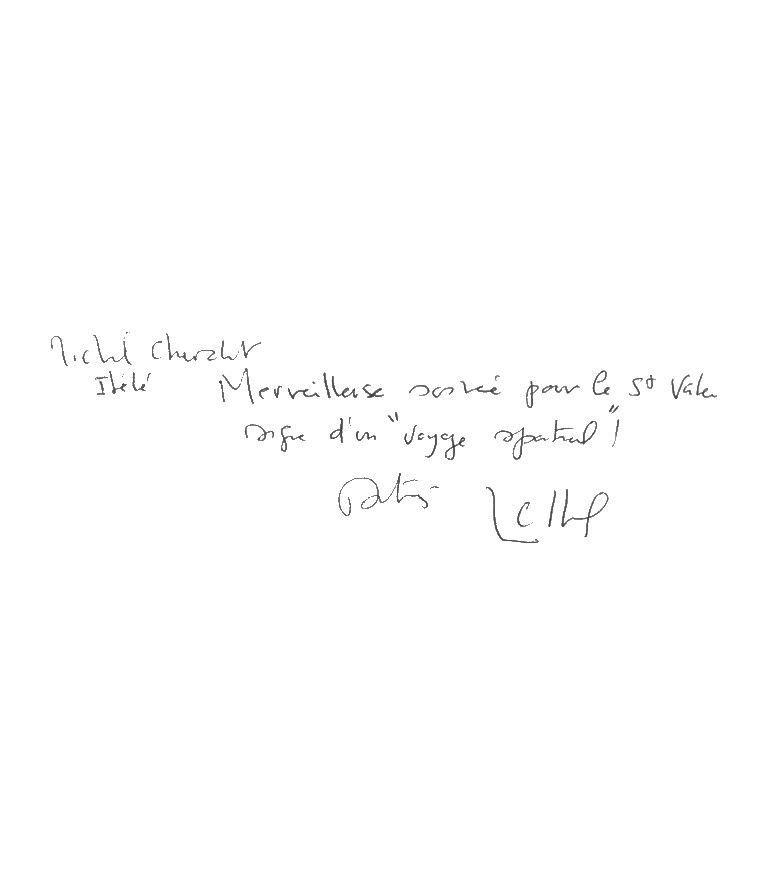 Michel Chevalet
Itélé
Merveilleuse soirée pour la St Valen
digne d'un "voyage spatial"!